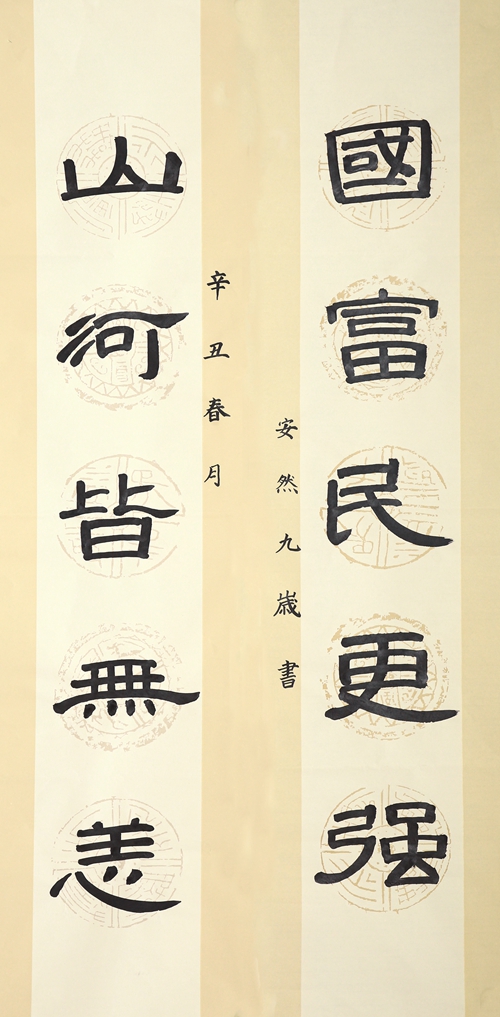 國富民更强
山河皆無恙
辛丑春月
安然九歲書